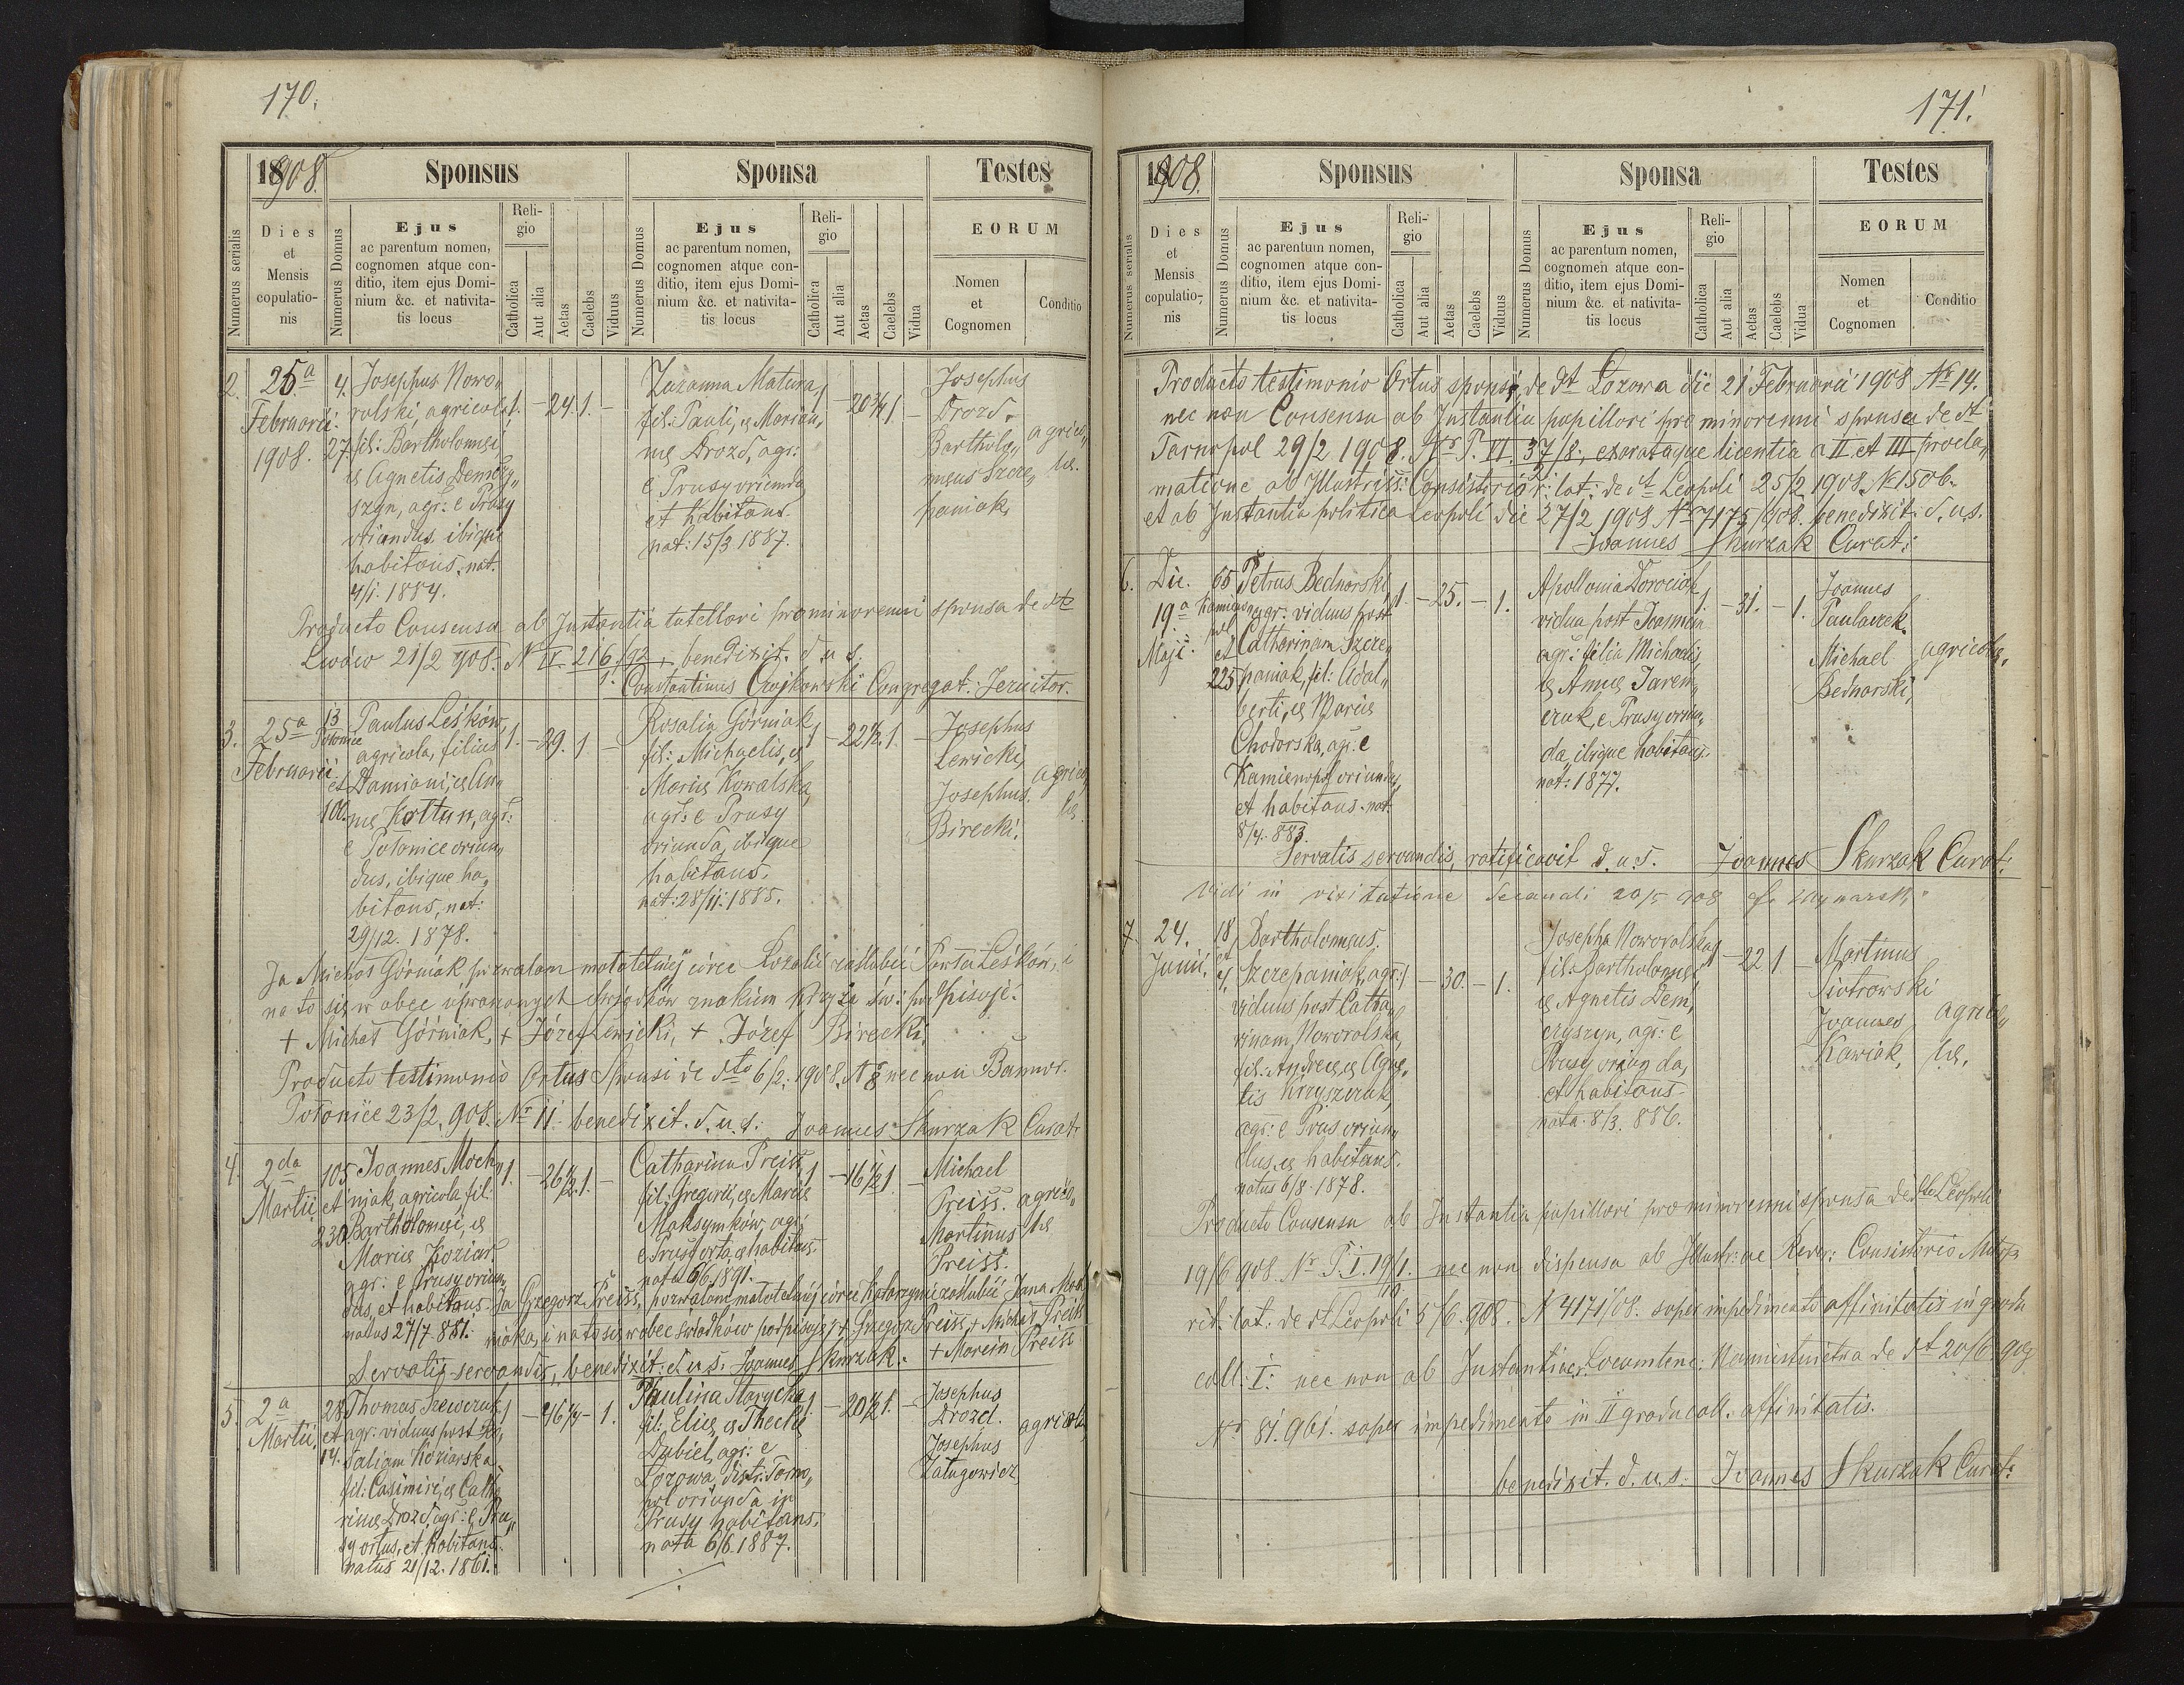 170.
1908.
Sponsus
Sponsa
Testes
Numerus serialis
Dies
et
Mensis
copulatio-
nis
Numerus Domus
Ejus
ac parentum nomen,
cognomen atque con-
ditio, item ejus Domi-
nium &c. et nativita-
tis locus
Reli-
gio
Catholica
Aut alia
Aetas
Caelebs
Viduus
Numerus Domus
Ejus
ac parentum nomen,
cognomen atque con-
ditio, item ejus Domi-
nium &c. et nativita-
tis locus
Reli-
gio
Catholica
Aut alia
Aetas
Caelebs
Vidua
EORUM
Nomen
et
Cognomen
Conditio
2.
25.a
Februarii
1908.
4.
27.
Josephus Nowo„
rolski, agricola,
fil: Bartholomaei,
et Agnetis Demczy„
szyn, agr: e Prusy
oriundus ibique
habitans, nat.
4/1. 1884.
1. – 24. 1. –
Zuzanna Matura,
fil: Pauli, et Marian„
nae Drozd, agr:
e Prusy oriunda
et habitans
nat: 15/3 1887.
1 – 20 3/4 1 –
Josephus
Drozd.
Bartholo„
maeus Szcze„
paniak,
agrico„
lae.
Producto Consensu ab Instantia tutellari pro minorenni sponsa de dto
Lwów 21/2 908. N II 216/92 benedixit. d. u. s.
Constantinus Czajkowski Congregat: Jezuitor.
3.
25a
Februarii
13
Połonice
et
106.
Paulus Leśków,
agricola, filius
Damiani, et An„
nae Kołtun, agr:
e Połonice oriun„
dus, ibique ha„
bitans, nat:
29/12. 1878.
1. – 29. 1. –
Rosalia Górniak,
fil: Michaelis, et
Mariae Kowalska,
agr: e Prusy
oriunda, ibique
habitans.
nat: 28/11. 1885.
1 – 22 1/2. 1 –
Josephus
Lewicki,
Josephus
Birecki.
agrico„
lae.
Ja Michał Górniak pozwalam małoletniej córce Rozalii zaślubić Pawła Leśków, i
na to się w obec uproszonych świadków znakiem krzyża św: podpisuję.
+ Michał Górniak, + Józef Lewicki, + Józef Birecki,
Producto testimonio Ortus Sponsi de dto 6/2. 1908. N 8 nec non Bannor.
Połonice 23/2. 908. Nr 11. benedixit. d. u. s. Joannes Skurzak Curat:
4.
2da
Martii
105
et
230
Joannes Moch„
niak, agricola, fil:
Bartholomaei, et
Mariae Koziar,
agr: e Prusy oriun„
dus, et habitans.
natus 27/7 881.
1. – 26 1/2. 1. –
Catharina Preiss,
fil: Gregorii, et Mariae
Maksymków, agr:
e Prusy orta, et habitans.
nata 6/6. 1891.
1 – 16 1/2 1 –
Michael
Preiss.
Martinus
Preiss.
agrico„
lae
Ja Grzegorz Preiss, pozwalam małoletniej córce Katarzynie zaślubić Jana Moch
niaka, i na to się w obec świadków podpisuję + Grzegorz Preiss, + Michał Preiss
+ Marcin Preiss
Servatis servandis, benedixit. d. u. s. Joannes Skurzak.
5.
2a
Martii.
28
et
14.
Thomas Szewczuk,
agr: viduus post Ro„
saliam Koziarska
fil: Casimiri, et Catha
rinae Drozd, agr: e Pru„
sy ortus, et habitans.
natus 21/12. 1861.
1 – 46 1/4 – 1.
Paulina Starycka,
fil: Eliae, et Theclae
Dubiel, agr: e
Łozowa, distr: Tarno„
pol oriunda in
Prusy habitans.
nata 6/6. 1887.
1 – 20 1/2 1. –
Josephus
Drozd.
Josephus
Załugowicz
agricolae
171.
1908.
Sponsus
Sponsa
Testes
Numerus serialis
Dies
et
Mensis
copulatio-
nis
Numerus Domus
Ejus
ac parentum nomen,
cognomen atque con-
ditio, item ejus Domi-
nium &c. et nativita-
tis locus
Reli-
gio
Catholica
Aut alia
Aetas
Caelebs
Viduus
Numerus Domus
Ejus
ac parentum nomen,
cognomen atque con-
ditio, item ejus Domi-
nium &c. et nativita-
tis locus
Reli-
gio
Catholica
Aut alia
Aetas
Caelebs
Vidua
EORUM
Nomen
et
Cognomen
Conditio
Producto testimonio Ortus sponsae, de dt Łozowa die 21 Februarii 1908 Nr 14.
nec non Consensu ab Instantia pupillari pro minorenni sponsa de dt
Tarnopol 29/2 1908. Nr P. VI. 37/8, exarataque licentia a II et III procla„
matione ab Illustriss: Consistorio r: lat: de dt Leopoli 25/2 1908. N 1506.
et ab Instantia politica Leopoli die 27/2 1908 Nr 7175/908. benedixit. d. u. s.
Joannes Skurzak Curat:
6.
Die.
19a
Maji.
65
Kamieno
pol
et
225
Petrus Bednarski
agr: viduus post
Catharinam Szcze„
paniak, fil: Adal„
berti, et Mariae
Chodorska, agr: e
Kamienopol oriundus,
et habitans. nat.
8/4. 883.
1. – 25. – 1.
Apollonia Dorociak,
vidua post Joannem
agr: filia Michaelis,
et Annae Jarem„
czuk, e Prusy oriun„
da, ibique habitans.
nat: 1877.
1. – 31. – 1.
Joannes
Pawlaczek
Michael
Bednarski,
agricolae.
Servatis servandis, ratificavit d. u. s. Joannes Skurzak Curat:
Vidi in visitatione decanali 20/5 908
7.
24.
Junii.
18
et
4,
Bartholomaeus.
Szczepaniak, agr:
viduus post Catha„
rinam, Noworolska,
fil: Andreae, et Agne„
tis Kryszczuk,
agr: e Prus oriun„
dus, et habitans.
natus 6/8. 1878.
1 – 30. – 1.
Josepha Noworolska,
fil: Bartholomaei
et Agnetis Dem„
czyszyn, agr: e
Prusy oriunda,
et habitans
nata 8/3. 886.
1 – 22 1 –
Martinus
Piotrowski
Joannes
Kawiak,
agrico„
lae.
Producto Consensu ab Instantia pupillari pro minorenni sponsa de dto Leopoli
19/6 908. Nr P. I. 19/1. nec non dispensa ab Illustr: ac Rever: Consistorio Metrop
rit: lat: de dt Leopoli 5/6. 908. N 4171/08. super impedimento affinitatis in gradu
coll: I: nec non ab Instantiae Locumtenc: Namiestnictwa de dt 20/6 908
Nr 81.961. super impedimento in II gradu coll. affinitatis.
benedixit. d. u. s. Joannes Skurzak Curat: